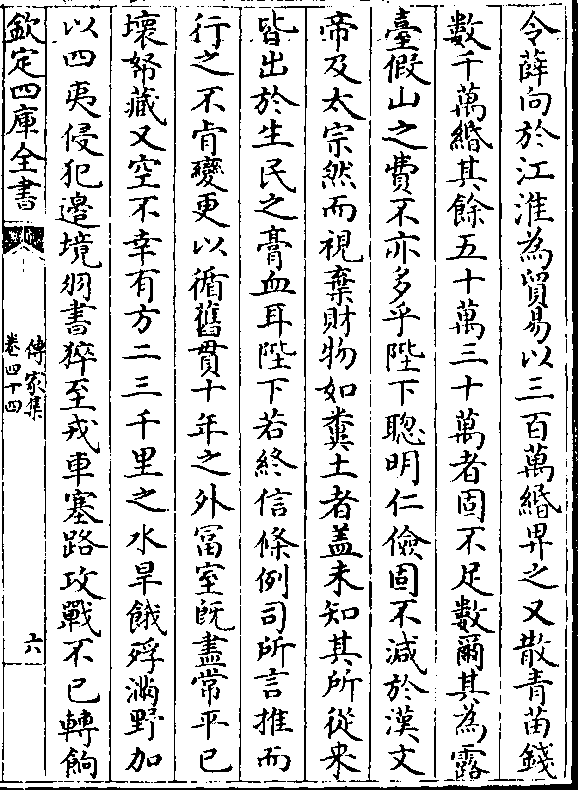 令薛向於江淮為貿易以三百萬緡畀之又散青苗錢
數千萬緡其餘五十萬三十萬者固不足數爾其為露
臺假山之費不亦多乎陛下聰明仁儉固不減於漢文
帝及太宗然而視棄財物如糞土者蓋未知其所從来
皆出於生民之膏血耳陛下若終信條例司所言推而
行之不肯變更以循舊貫十年之外富室既盡常平已
壞帑藏又空不幸有方二三千里之水旱餓殍滿野加
以四夷侵犯邉境羽書猝至戎車塞路攻戰不已轉餉
欽定四庫全書
傳家集
卷四十四
六